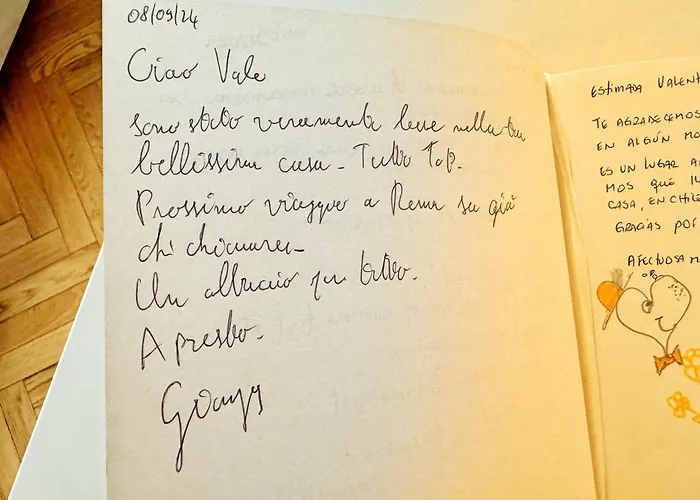 08/09/24
Ciao Vale
sono stato veramente bene nella tua
bellissima casa - Tutto Top.
Prossimo viaggio a Roma so già
chi chiamare -
Un abbraccio per tutto.
A presto.
ESTIMADA VALENT
TE AGRADECEMOS
EN ALGÚN MO
ES UN LUGAR A
MOS QUE
CASA, EN CHILE
GRACIAS POR
AFECTUOSA M